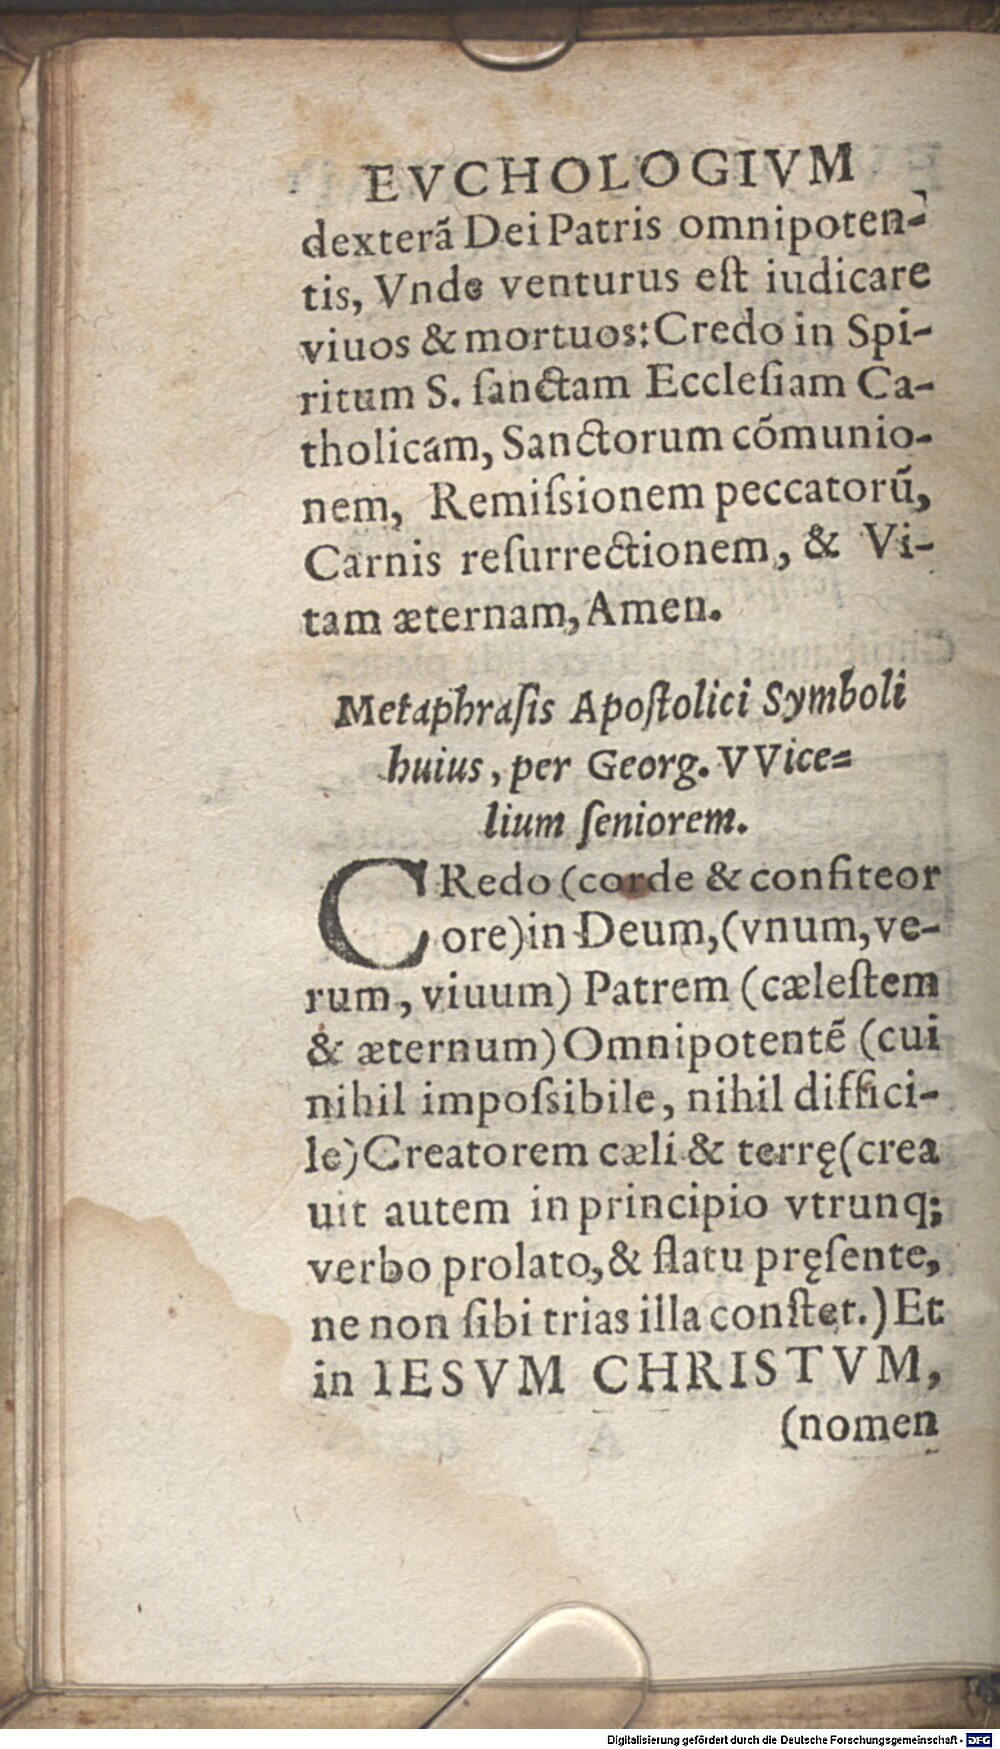 EVCHOLOGIVM
dexterã Dei Patris omnipoten-
tis, Vnde venturus est iudicare
viuos & mortuos: Credo in Spi-
ritum S. ſanctam Eccleſiam Ca-
tholicam, Sanctorum cõmunio-
nem, Remiſsionem peccatorũ,
Carnis reſurrectionem, & Vi-
tam æternam, Amen.
Metaphraſis Apoſtolici Symboli
huius, per Georg. VVice=
lium ſeniorem.
CRedo (corde & confiteor
ore) in Deum, (vnum, ve-
rum, viuum) Patrem (cæleſtem
& æternum) Omnipotentẽ (cui
nihil impoſsibile, nihil diffici-
le) Creatorem cæli & terrę (crea
uit autem in principio vtrunq;
verbo prolato, & flatu pręſente,
ne non ſibi trias illa conſtet.) Et
in IESVM CHRISTVM,
(nomen
Digitalisierung gefördert durch die Deutsche Forschungsgemeinschaft - DFG